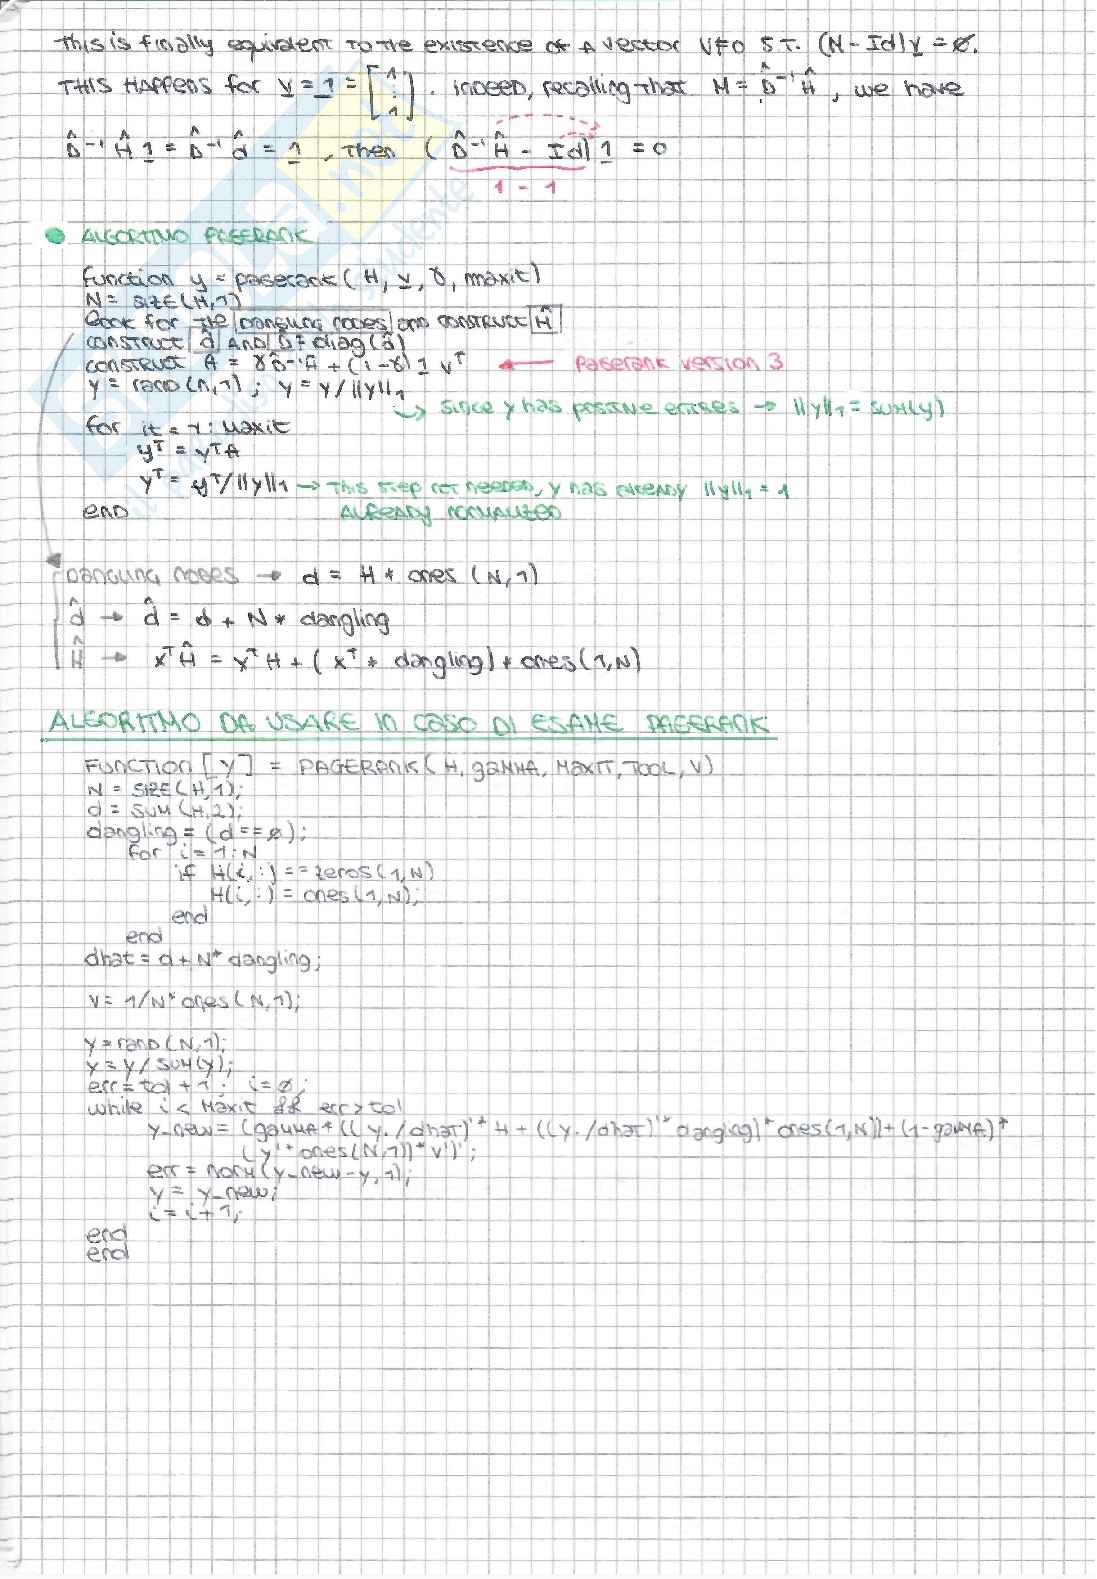 This is finally equivalent to the existence of a vector v≠0 s.t. (M-Id)v = 0.
THIS HAPPENS for v = 1 = [1 ⋮ 1]. Indeed, recalling that M = D̂⁻¹Ĥ, we have
D̂⁻¹Ĥ1 = D̂⁻¹d̂ = 1, Then (D̂⁻¹Ĥ - Id)1 = 0
1 - 1
ALGORITMO PAGERANK
function y = pagerank(H, v, γ, maxit)
N = SIZE(H,1)
look for the DANGLING NODES and CONSTRUCT Ĥ
CONSTRUCT d̂ AND D̂ = diag(d̂)
CONSTRUCT A = γD̂⁻¹Ĥ + (1-γ)1vᵀ ← Pagerank version 3
y = rand(n,1); y = y/||y||₁
↳ since y has positive entries → ||y||₁ = SUM(y)
for it = 1:Maxit
yᵀ = yᵀA
yᵀ = yᵀ/||y||₁ → This step not needed, y has already ||y||₁ = 1
end ALREADY NORMALIZED
DANGLING NODES → d = H * ones(N,1)
d̂ → d̂ = d + N * dangling
Ĥ → xᵀĤ = xᵀH + (xᵀ * dangling) * ones(1,N)
ALGORITMO DA USARE IN CASO DI ESAME PAGERANK
FUNCTION [Y] = PAGERANK(H, GAMMA, MAXIT, TOOL, V)
N = SIZE(H,1);
d = SUM(H,2);
dangling = (d==0);
for i = 1:N
if H(i,:) == zeros(1,N)
H(i,:) = ones(1,N);
end
end
dhat = d + N* dangling;
v = 1/N* ones(N,1);
y = rand(N,1);
y = y/SUM(y);
err = tol + 1; i = 0;
while i < Maxit && err > tol
y_new = (gamma * ((y./dhat)'* H + ((y./dhat)'* dangling)* ones(1,N)) + (1-gamma)*
(y'* ones(N,1))* v')';
err = norm(y_new-y,1);
y = y_new;
i = i+1;
end
end